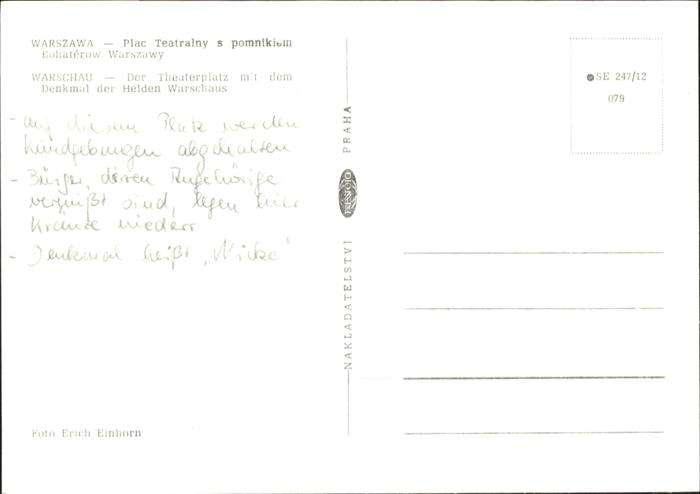 WARSZAWA — Plac Teatralny s pomnikiem
Bohatérow Warszawy
WARSCHAU — Der Theaterplatz mit dem
Denkmal der Helden Warschaus
- auf diesem Platz werden
Kundgebungen abgehalten
- Bürger, deren Angehörige
vermißt sind, legen hier
Kränze nieder
- Denkmal heißt „Nike"
Foto Erich Einhorn
NAKLADATELSTVÍ
PRAHA
SE 247/12
079